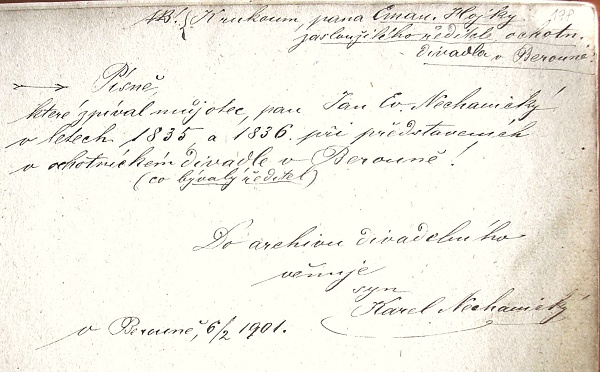 NB! K rukoum, pana Eman. Hojky
zasloužilého ředitele ochotn.
divadla v Berouně!
Písně,
které zpíval můj otec, pan Jan Ev. Nechanický
v letech 1835 a 1836 při představeních
v ochotnickém divadle v Berouně!
(co bývalý ředitel)
Do archivu divadelního
věnuje
syn
Karel Nechanický
v Berouně, 6/2 1901.